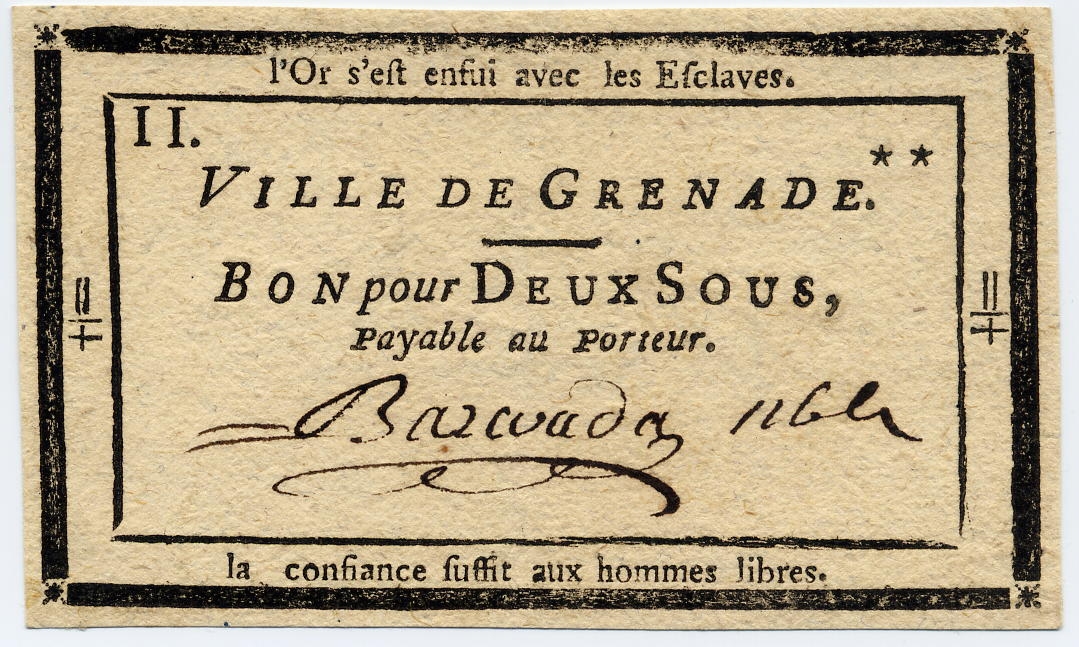 l'Or s'eſt enfui avec les Eſclaves.
II.
**
VILLE DE GRENADE.
BON pour DEUX SOUS,
Payable au Porteur.
la confiance ſuffit aux hommes libres.